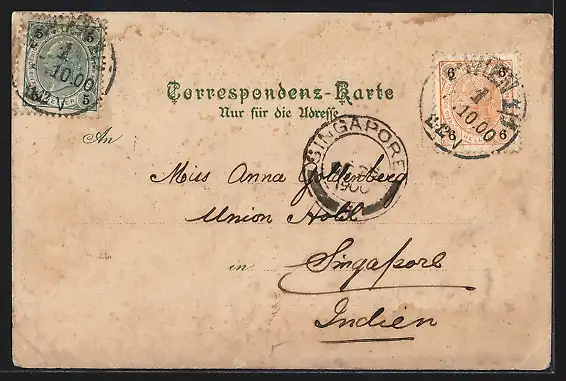 5 5
5
1
10 00
Correspondenz-Karte
Nur für die Adresse
6 6
WIEN 1/1
1
10 00
6 6
An
SINGAPORE
1900
Miss Anna Goldenberg
Union Hotel
in Singapore
Indien